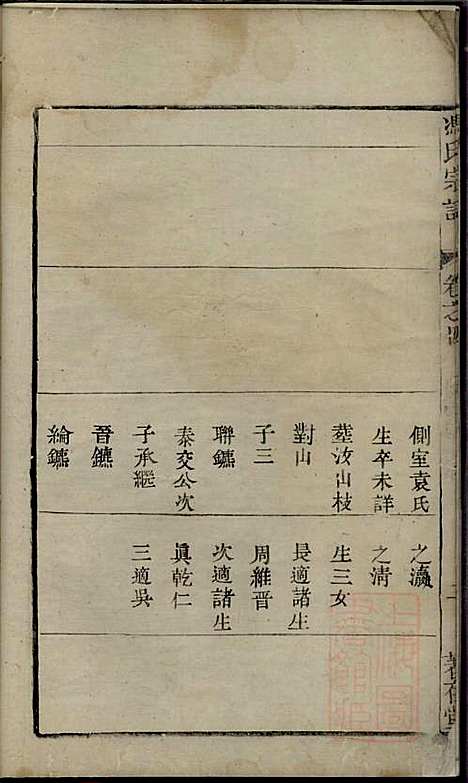 馮氏宗譜
卷之四
側室袁氏
生卒未詳
葬汝山枝
對山
子三
聯鑣
泰交公次
子承繼
晉鑣
綸鑣
之瀛
之淸
生三女
長適諸生
周維晉
次適諸生
眞乾仁
三適吳